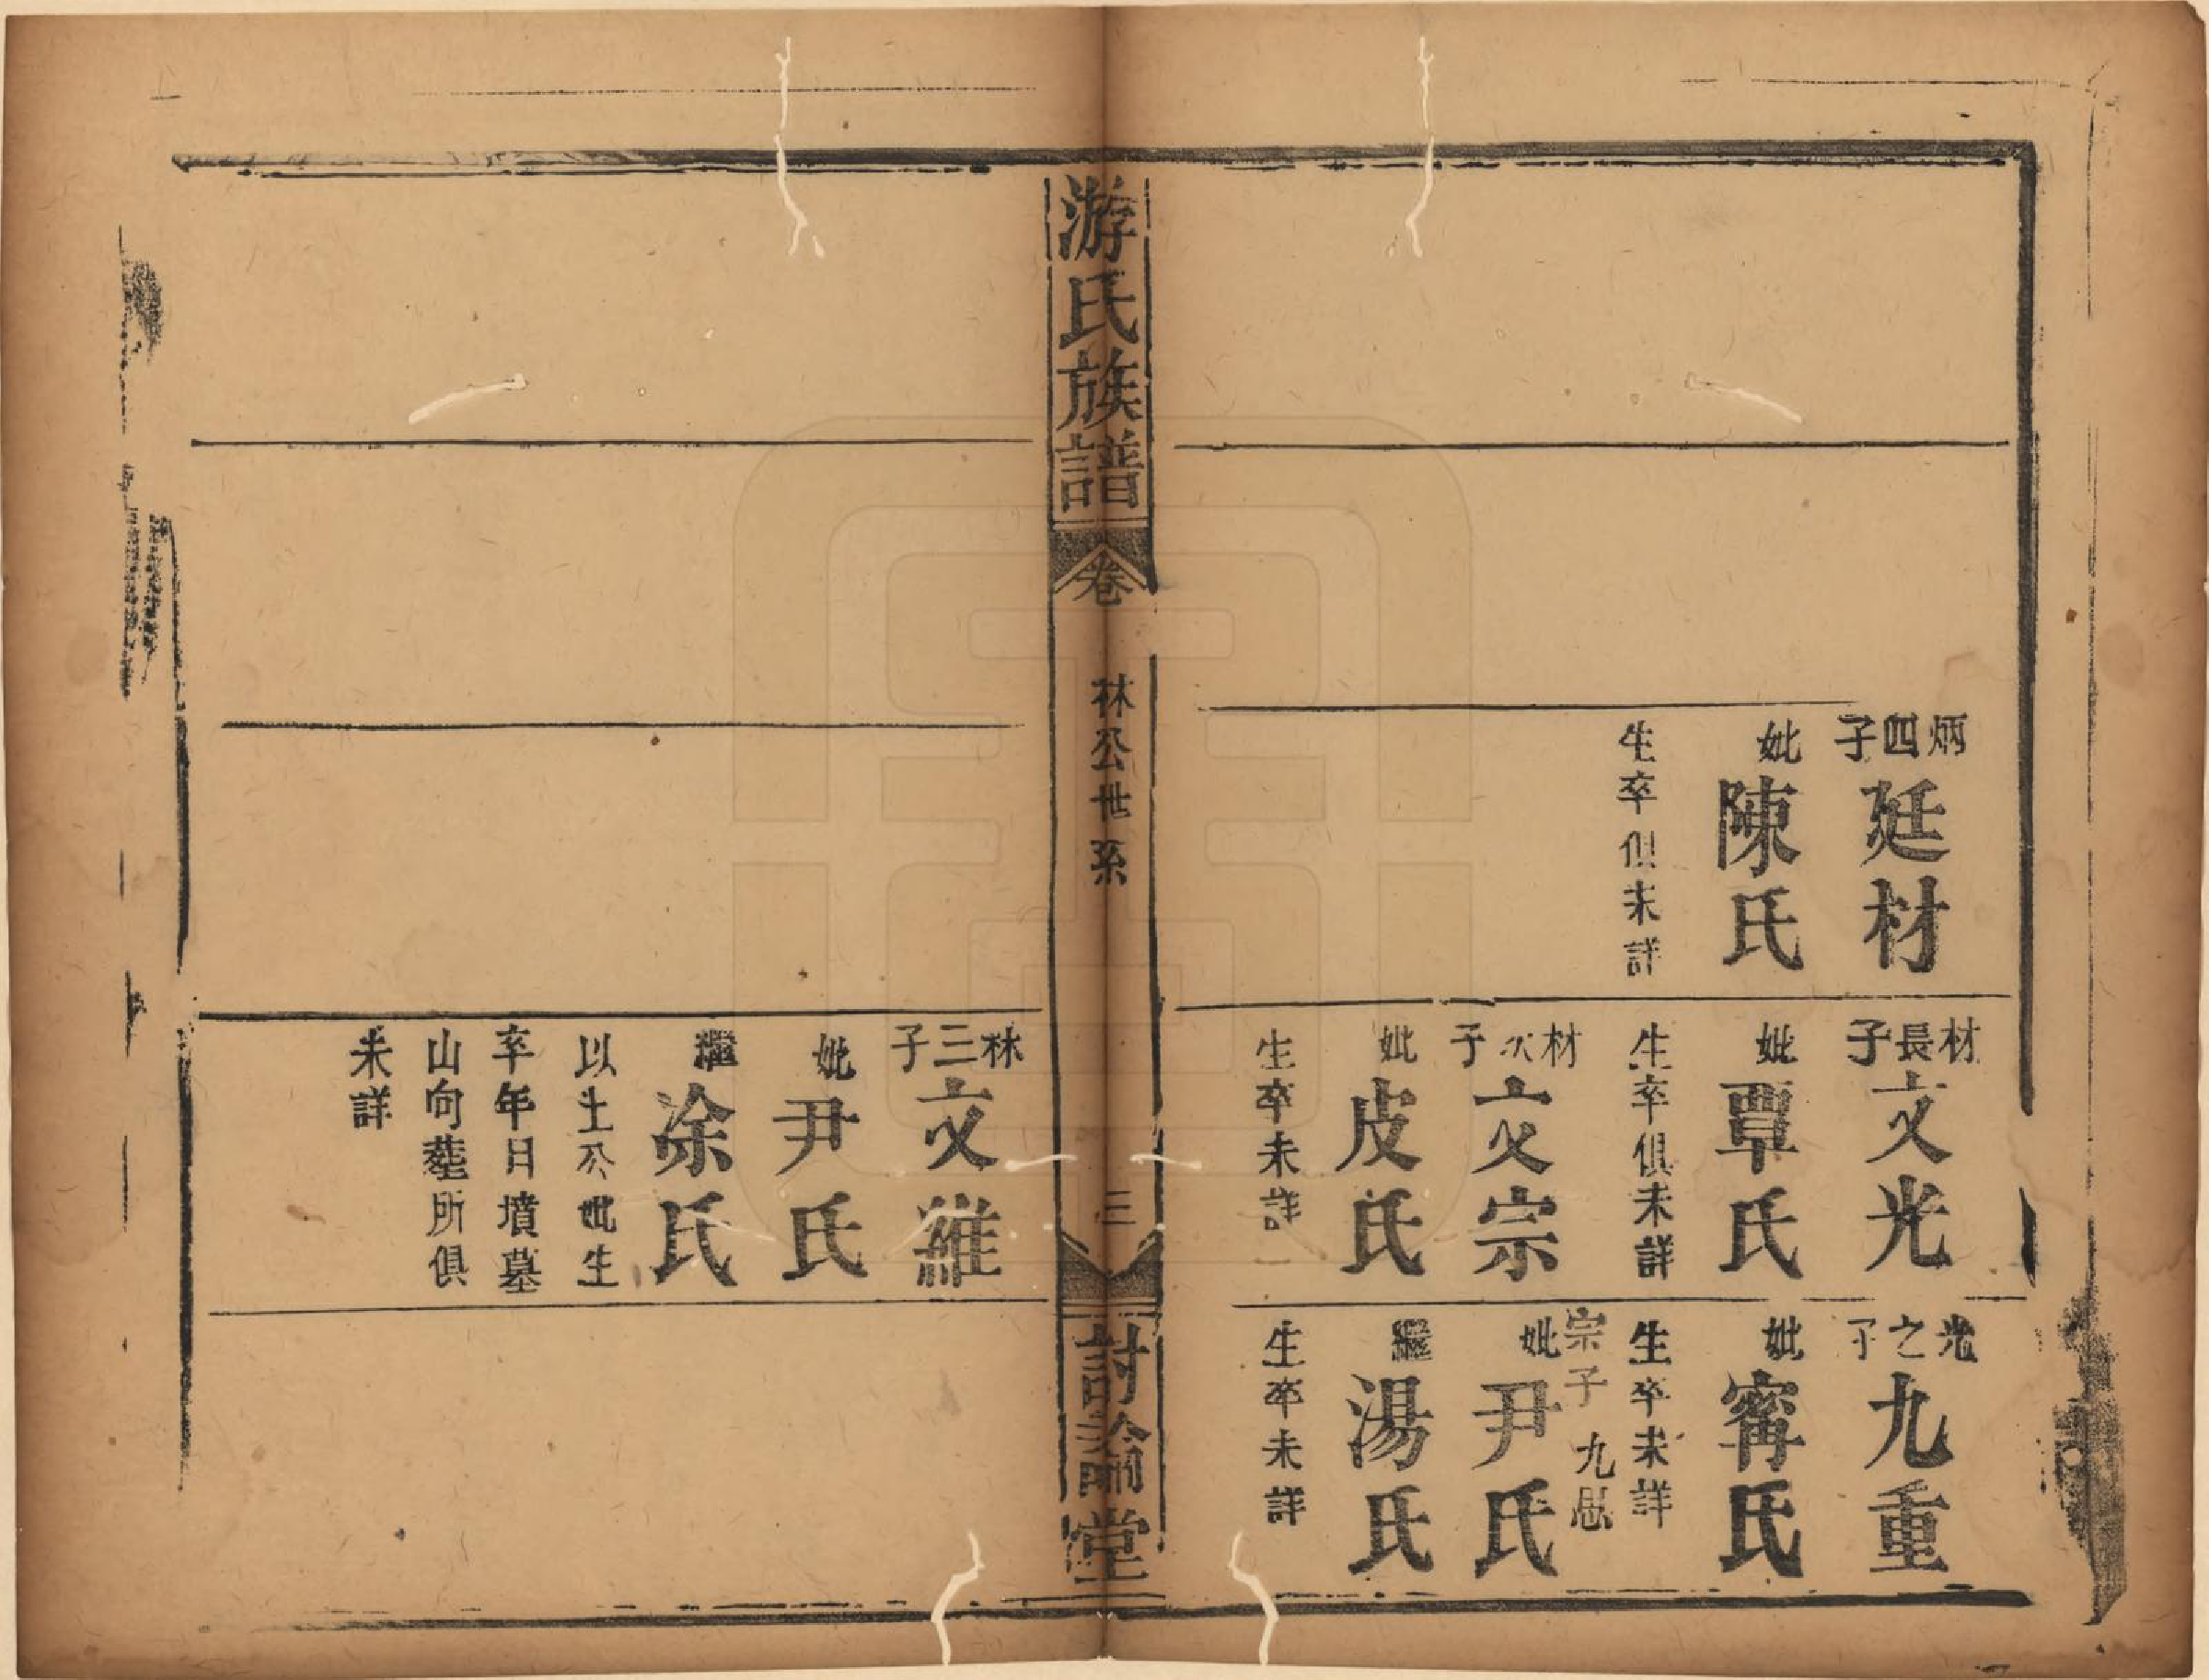 炳四子廷材
妣陳氏
生卒俱未詳
材長子文光
妣覃氏
生卒俱未詳
材次子文宗
妣皮氏
生卒未詳
光之子九重
妣甯氏
生卒未詳
宗子九思
妣尹氏
繼湯氏
生卒未詳
游氏族譜
卷
林公世系
三
討論堂
林三子文維
妣尹氏
繼涂氏
以上公妣生
卒年日墳墓
山向葬所俱
未詳